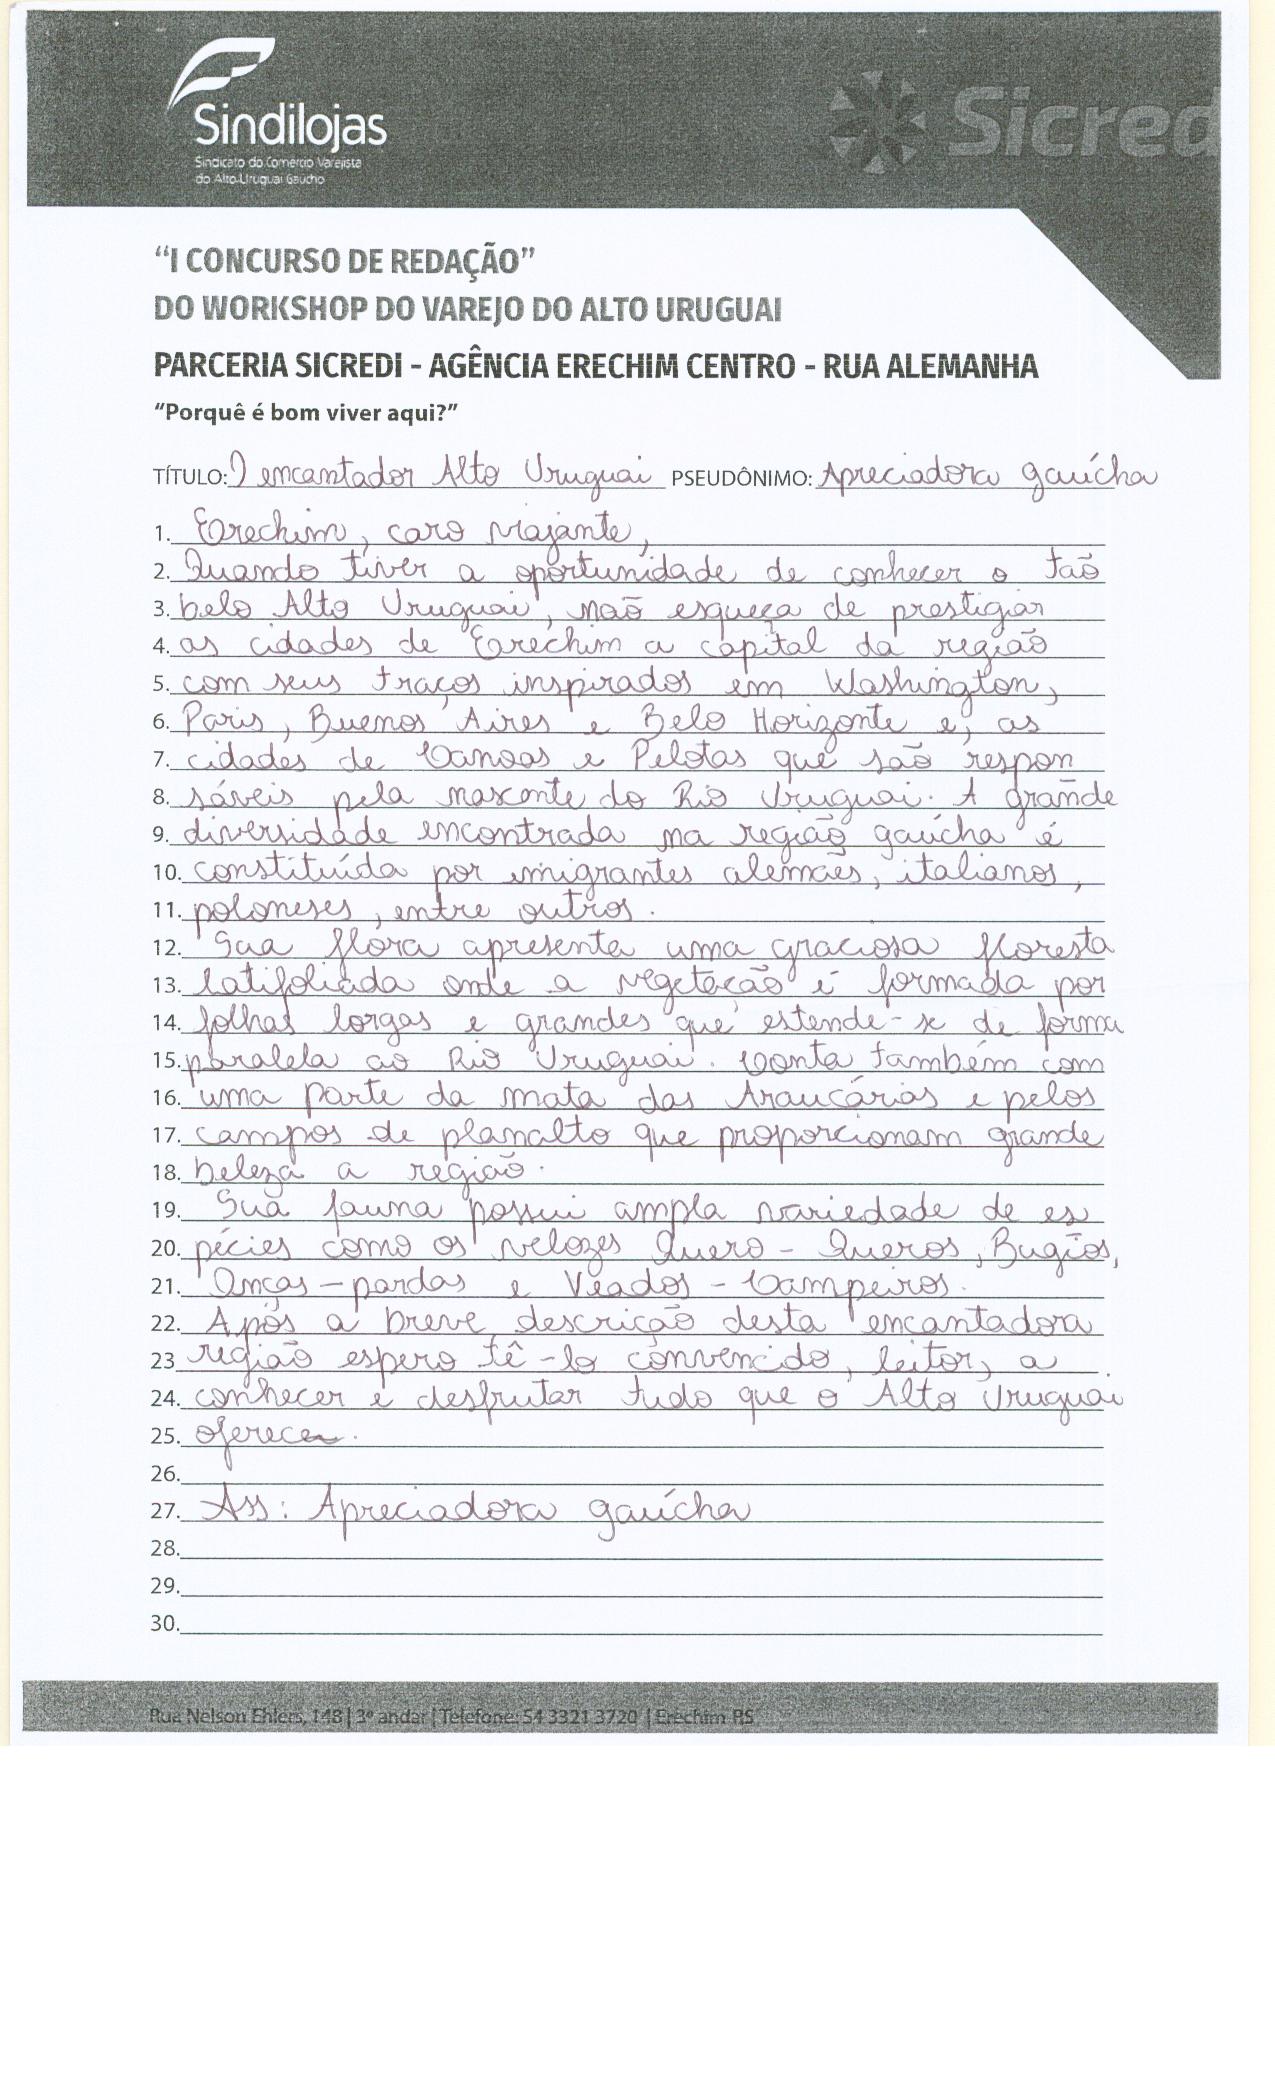 Sindilojas
Sindicato do Comércio Varejista
do Alto Uruguai Gaúcho
Sicred
“I CONCURSO DE REDAÇÃO”
DO WORKSHOP DO VAREJO DO ALTO URUGUAI
PARCERIA SICREDI - AGÊNCIA ERECHIM CENTRO - RUA ALEMANHA
“Porquê é bom viver aqui?”
TÍTULO: O encantador Alto Uruguai PSEUDÔNIMO: Apreciadora gaúcha
1. Erechim, caro viajante,
2. Quando tiver a oportunidade de conhecer o tão
3. belo Alto Uruguai, não esqueça de prestigiar
4. as cidades de Erechim a capital da região
5. com seus traços inspirados em Washington,
6. Paris, Buenos Aires e Belo Horizonte e, as
7. cidades de Canoas e Pelotas que são respon
8. sáveis pela nascente do Rio Uruguai. A grande
9. diversidade encontrada na região gaúcha é
10. constituída por imigrantes alemães, italianos,
11. poloneses, entre outros.
12. Sua flora apresenta uma graciosa floresta
13. latifoliada onde a vegetação é formada por
14. folhas largas e grandes que estende-se de forma
15. paralela ao Rio Uruguai. Conta também com
16. uma parte da mata das Araucárias e pelos
17. campos de planalto que proporcionam grande
18. beleza a região.
19. Sua fauna possui ampla variedade de es
20. pécies como os velozes Quero-Queros, Bugios,
21. Onças-pardas e Veados-Campeiros.
22. Após a breve descrição desta encantadora
23 região espero tê-lo convencido, leitor, a
24. conhecer e desfrutar tudo que o Alto Uruguai
25. oferece.
26.
27. Ass: Apreciadora gaúcha
28.
29.
30.
Rua Nelson Ehlers, 148 | 3º andar | Telefone: 54 3321 3720 | Erechim RS